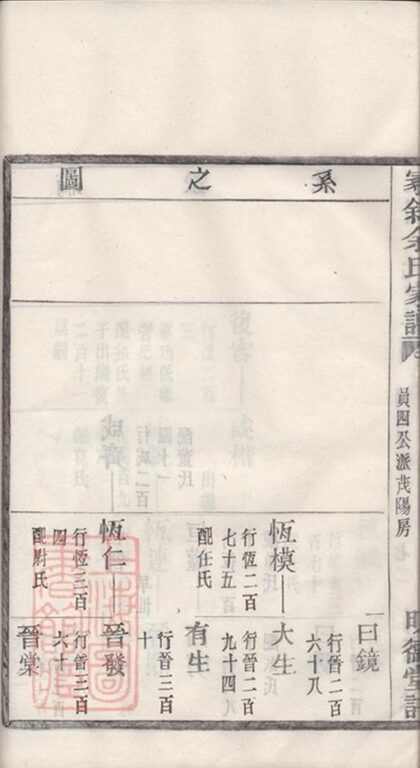 余氏家譜
員四公派茂陽房
明德堂譜
系之圖
恆模
行恆二百
七十五
配任氏
恆仁
行恆三百
四
配尉氏
曰鏡
行晉二百
六十八
大生
行晉二百
九十四
有生
行晉三百
十
晉發
行晉二百
六十
晉棠